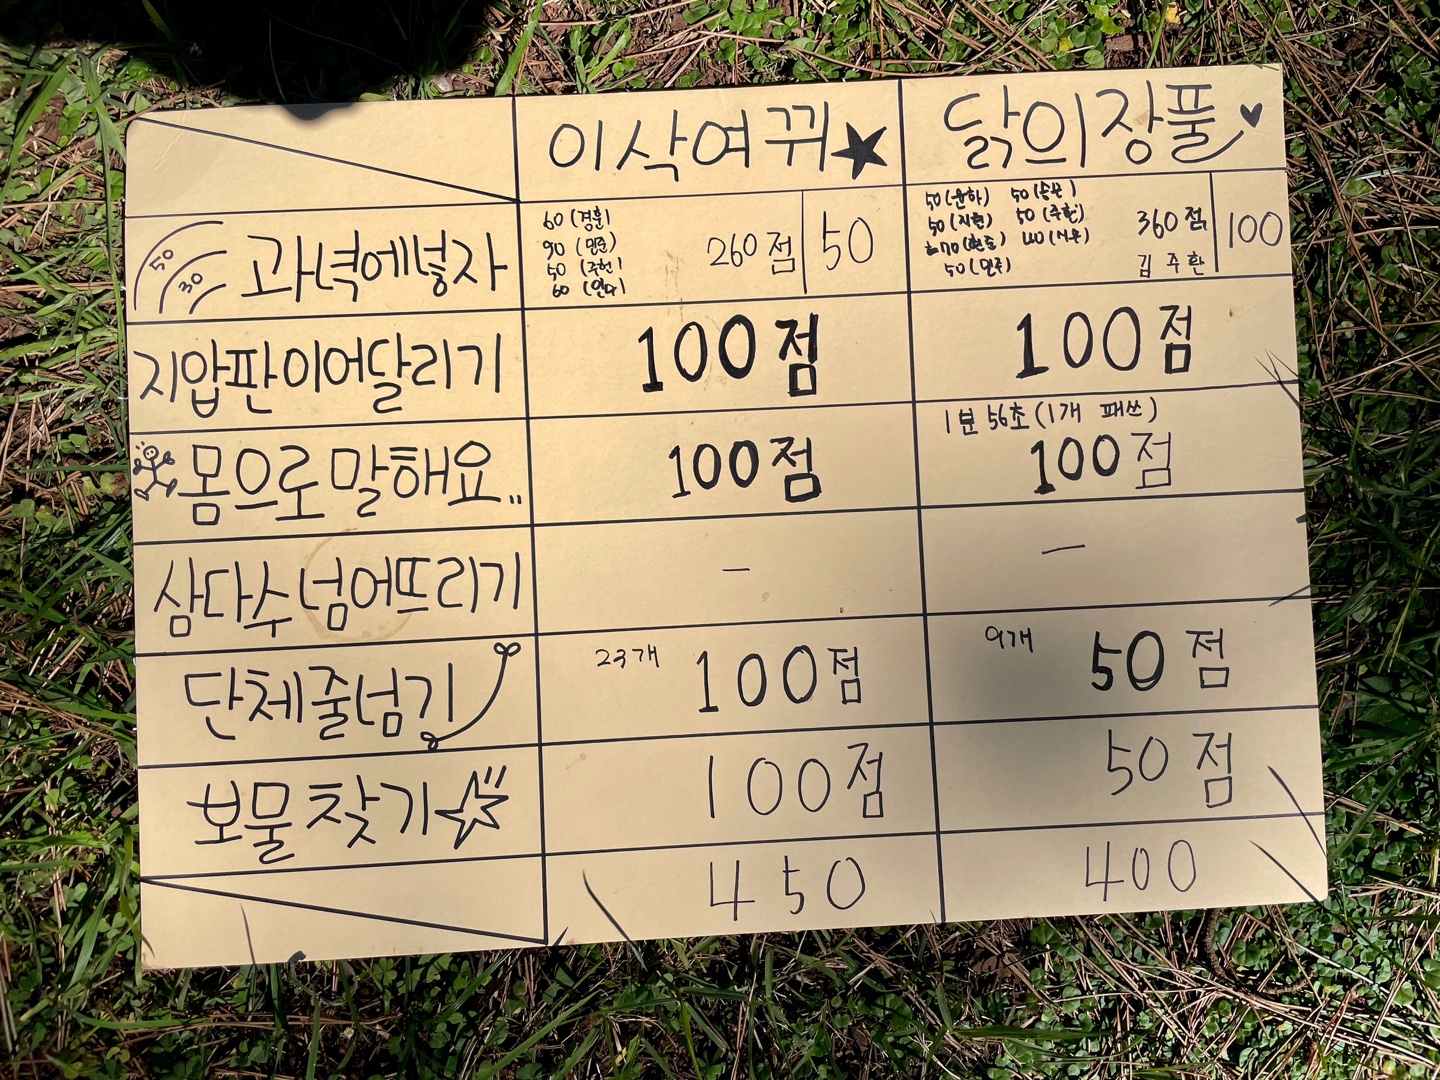 이삭여뀌 닭의장풀
50
30
과녁에넣자
60 (경훈)
90 (민준)
50 (주헌)
60
260점
50
50 (윤하) 50
50 (지현) 50 (주환)
70 (현승) 40 (시우)
50 (민주)
360점
김주환
100
지압판이어달리기 100점 100점
몸으로말해요.. 100점
1분 56초 (1개 패쓰)
100점
삼다수넘어뜨리기 - -
단체줄넘기 23개 100점 9개 50점
보물찾기 100점 50점
450 400